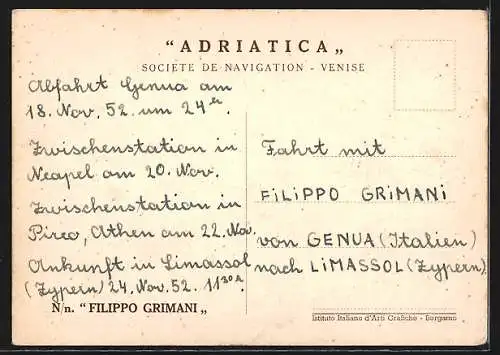 “ ADRIATICA „
SOCIETE DE NAVIGATION - VENISE
Abfahrt Genua am
18. Nov. 52. um 24er.
Zwischenstation in
Neapel am 20. Nov.
Zwischenstation in
Pireo, Athen am 22. Nov.
Ankunft in Limassol
(Zypern) 24. Nov. 52. 1130h.
N/n. “ FILIPPO GRIMANI „
Fahrt mit
FILIPPO GRIMANI
von GENUA (Italien)
nach LIMASSOL (Zypern)
Istituto Italiano d'Arti Grafiche - Bergamo